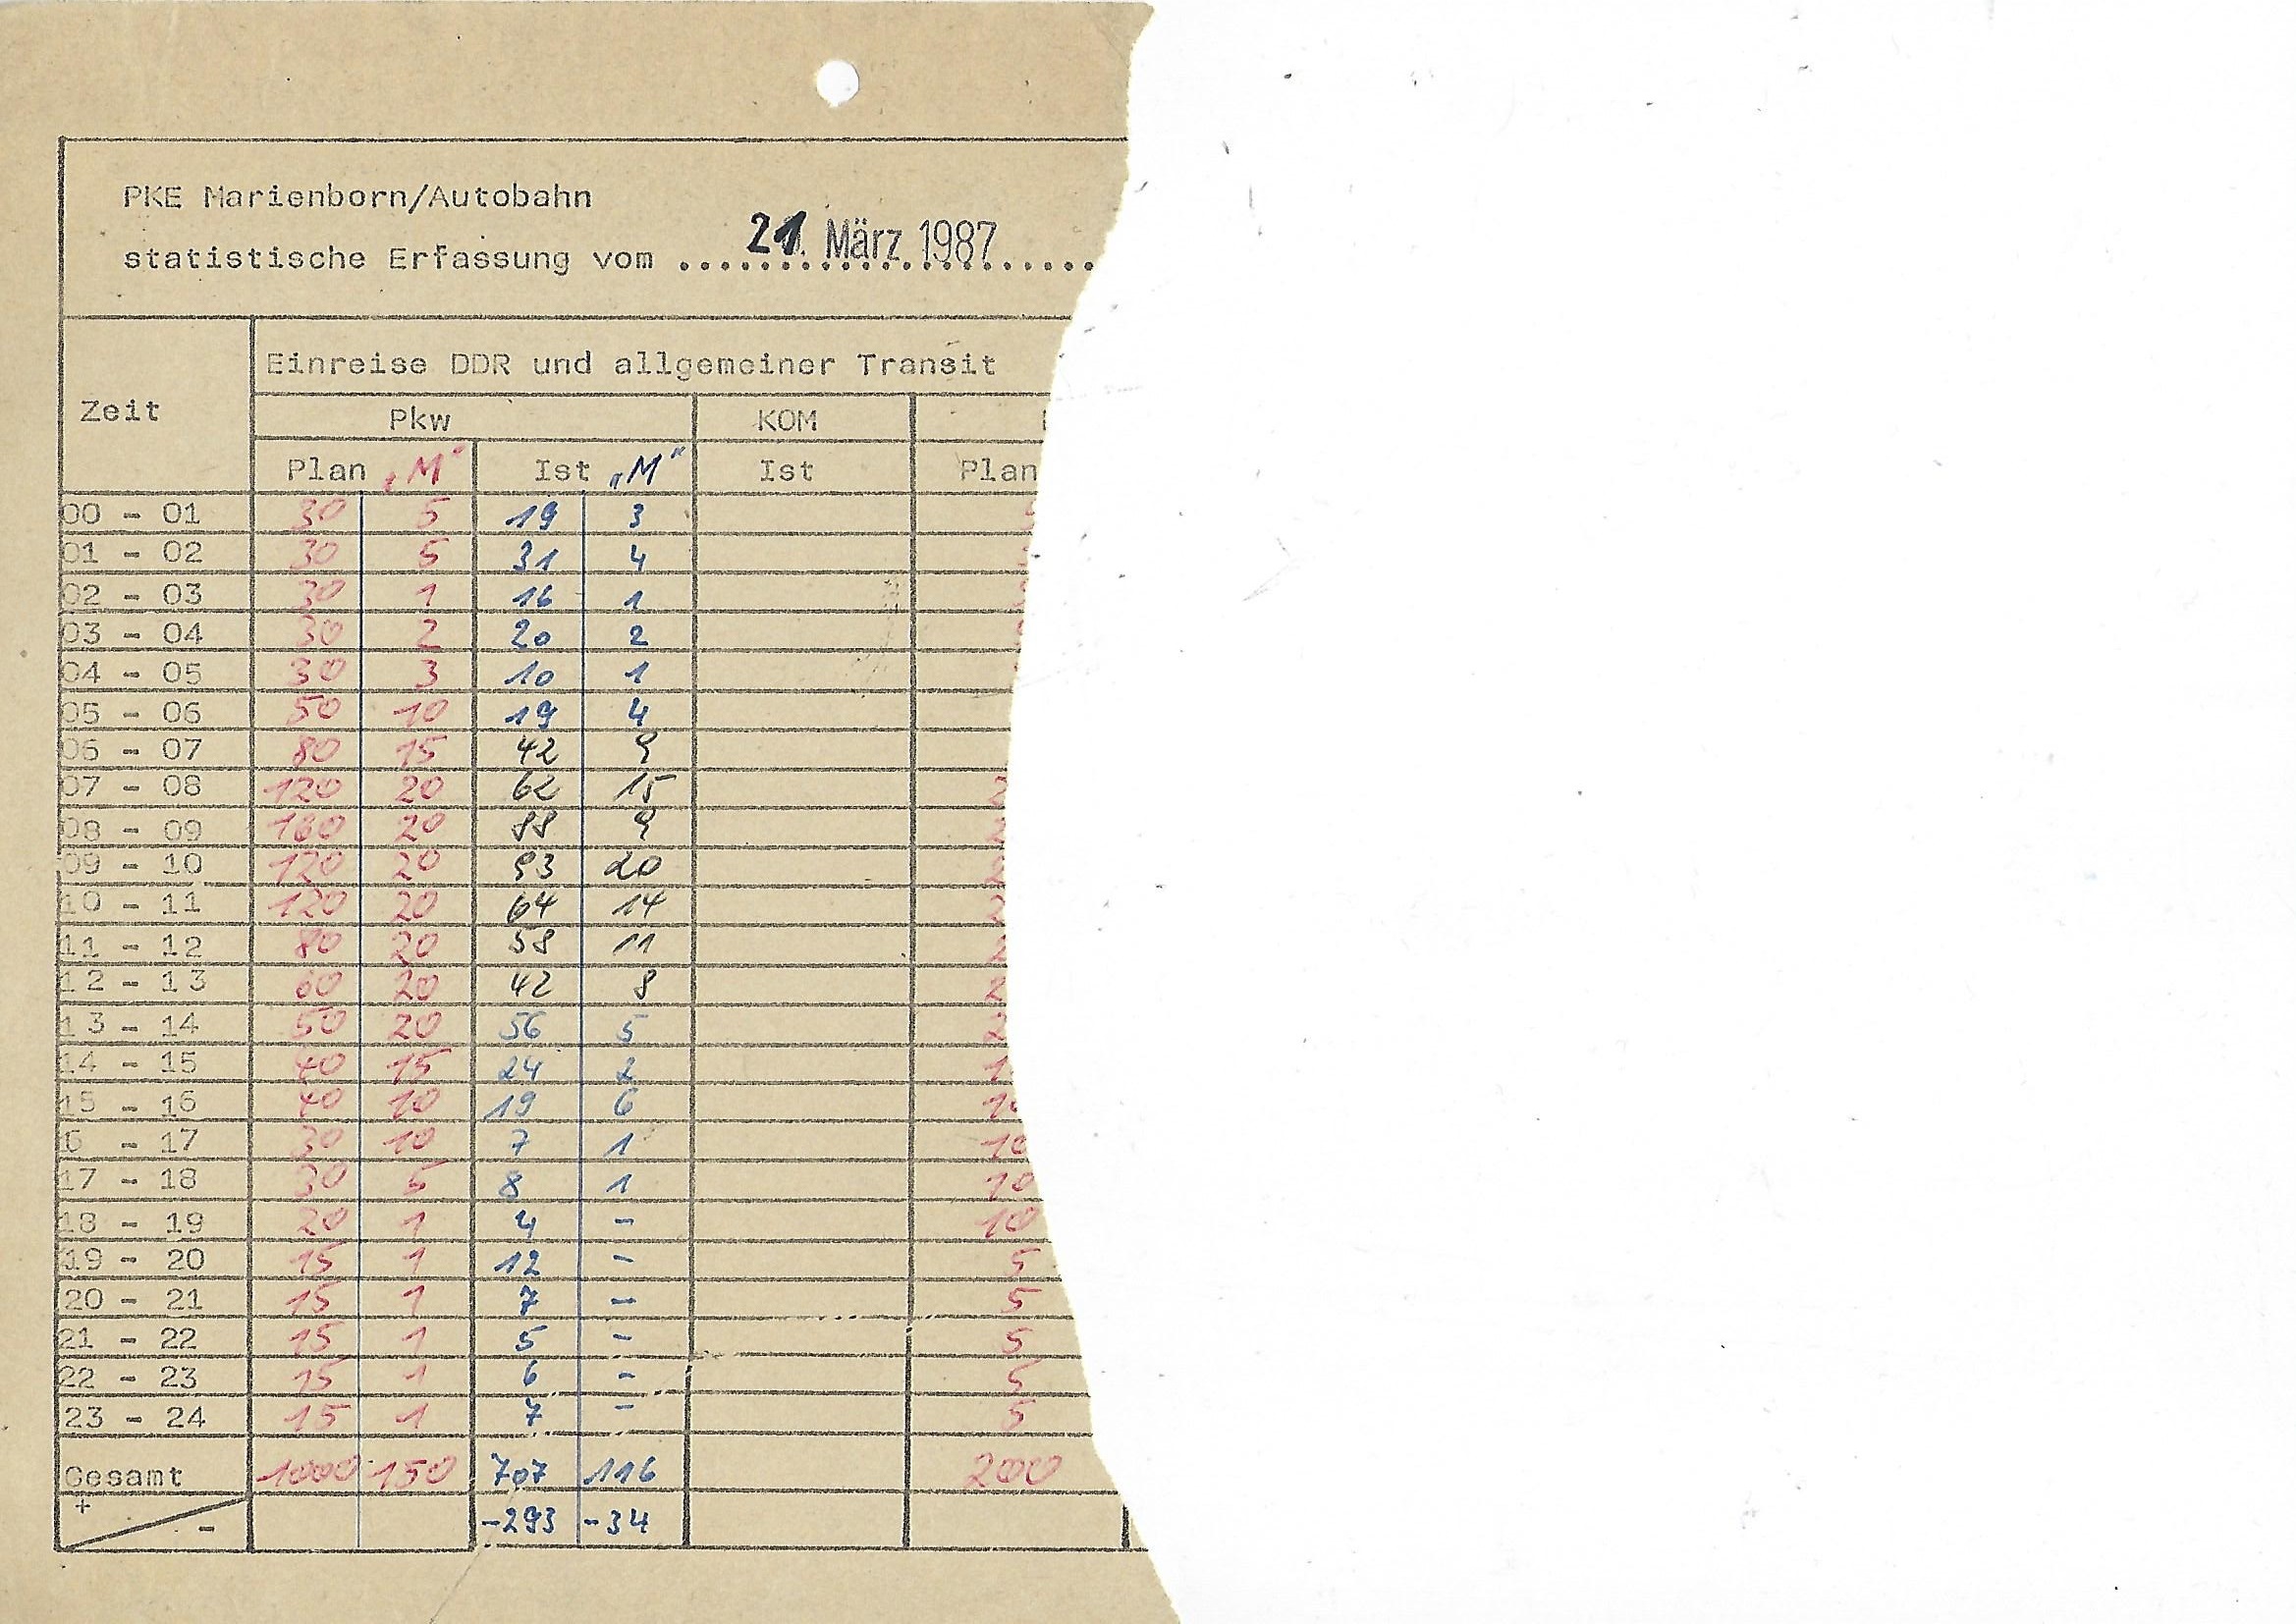 PKE Marienborn/Autobahn
statistische Erfassung vom 21. März 1987
Einreise DDR und allgemeiner Transit
Zeit
Pkw KOM
Plan „M" Ist „M" Ist Plan
00 - 01 30 5 19 3
01 - 02 30 5 31 4
02 - 03 30 1 16 1
03 - 04 30 2 20 2
04 - 05 30 3 10 1
05 - 06 50 10 19 4
06 - 07 80 15 42 9
07 - 08 120 20 62 15
08 - 09 20 88 9
09 - 10 120 20 93 20
10 - 11 120 20 64 14
11 - 12 80 20 58 11
12 - 13 60 20 42 8
13 - 14 50 20 56 5
14 - 15 40 15 24 2
15 - 16 40 10 19 6
6 - 17 30 10 7 1 10
17 - 18 30 5 8 1 10
18 - 19 20 1 4 - 10
19 - 20 15 1 12 - 5
20 - 21 15 1 7 - 5
21 - 22 15 1 5 - 5
22 - 23 15 1 6 - 5
23 - 24 15 1 7 - 5
Gesamt 1000 150 707 116 200
+ - -293 -34